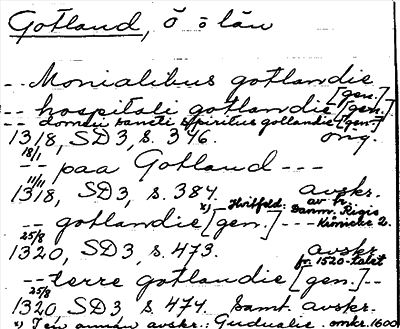 Gotland, ö o län
-- Monialibus gotlandie [gen.]
-- hospitali gotlandie [gen.]
-- domui sancti spiritus gotlandie [gen.]
1318, SD3, s. 346. orig.
18/1
-- paa Gotland ---
11/11
1318, SD3, s. 384. avskr.
x) Hvitfeld: av h.
Danm. Rigis
-- gotlandie [gen.] --- Krönicke 2.
25/8
1320, SD3, s. 473. avskr.
fr. 1520-talet
-- terre gotlandie [gen.] --
25/8
1320, SD3, s. 474. samt. avskr.
x) I en annan avskr.: Gudualie. omkr. 1600